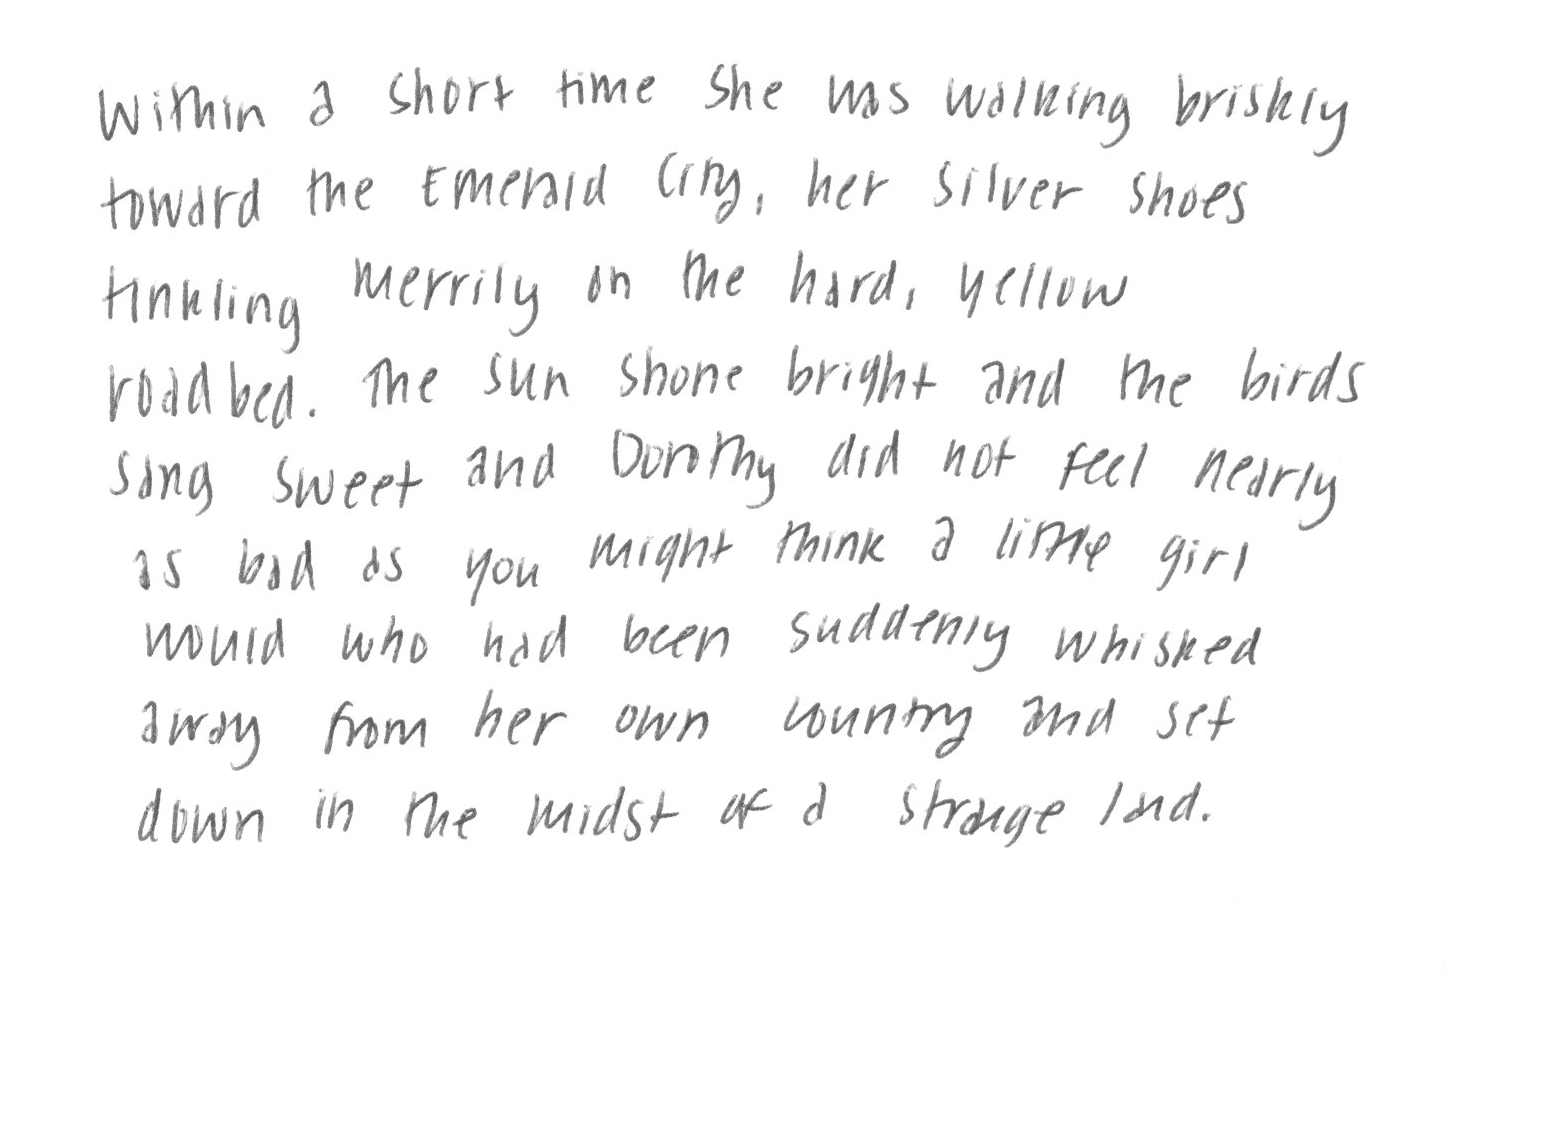 Within a short time she was walking briskly
toward the Emerald City, her silver shoes
tinkling merrily on the hard, yellow
roadbed. The sun shone bright and the birds
sang sweet and Dorothy did not feel nearly
as bad as you might think a little girl
would who had been suddenly whisked
away from her own country and set
down in the midst of a strange land.